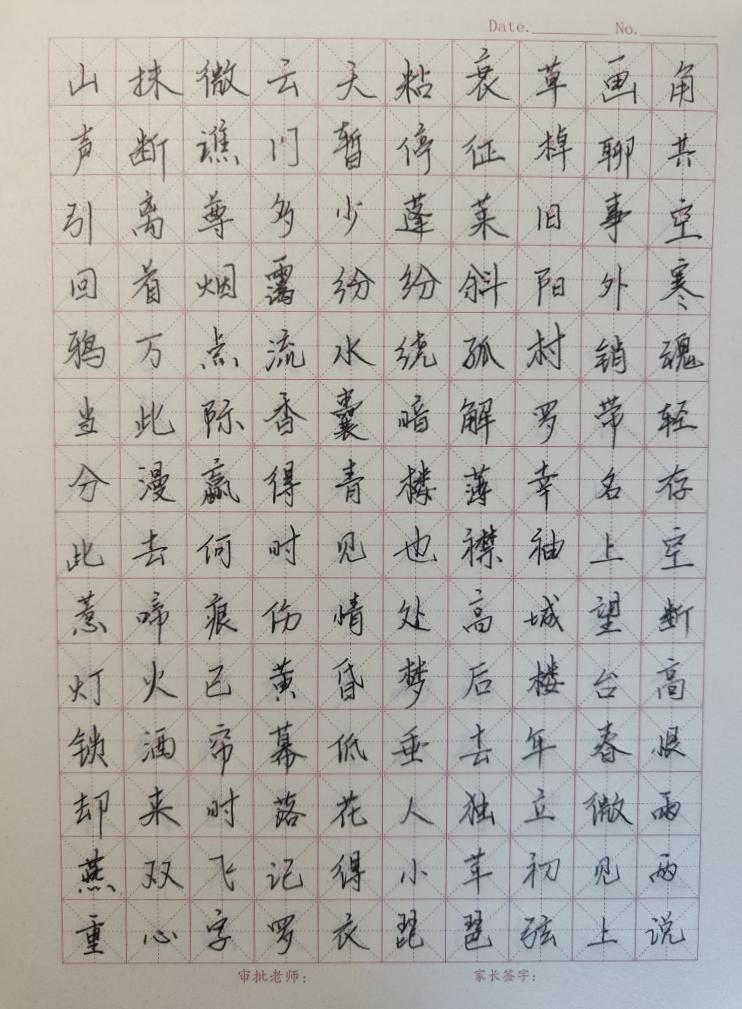 Date. No.
山抹微云天粘衰草画角
声断谯门暂停征棹聊共
引离尊多少蓬莱旧事空
回首烟霭纷纷斜阳外寒
鸦万点流水绕孤村销魂
当此际香囊暗解罗带轻
分漫赢得青楼薄幸名存
此去何时见也襟袖上空
惹啼痕伤情处高城望断
灯火已黄昏梦后楼台高
锁酒帘幕低垂去年春恨
却来时落花人独立微雨
燕双飞记得小苹初见两
重心字罗衣琵琶弦上说
审批老师： 家长签字：